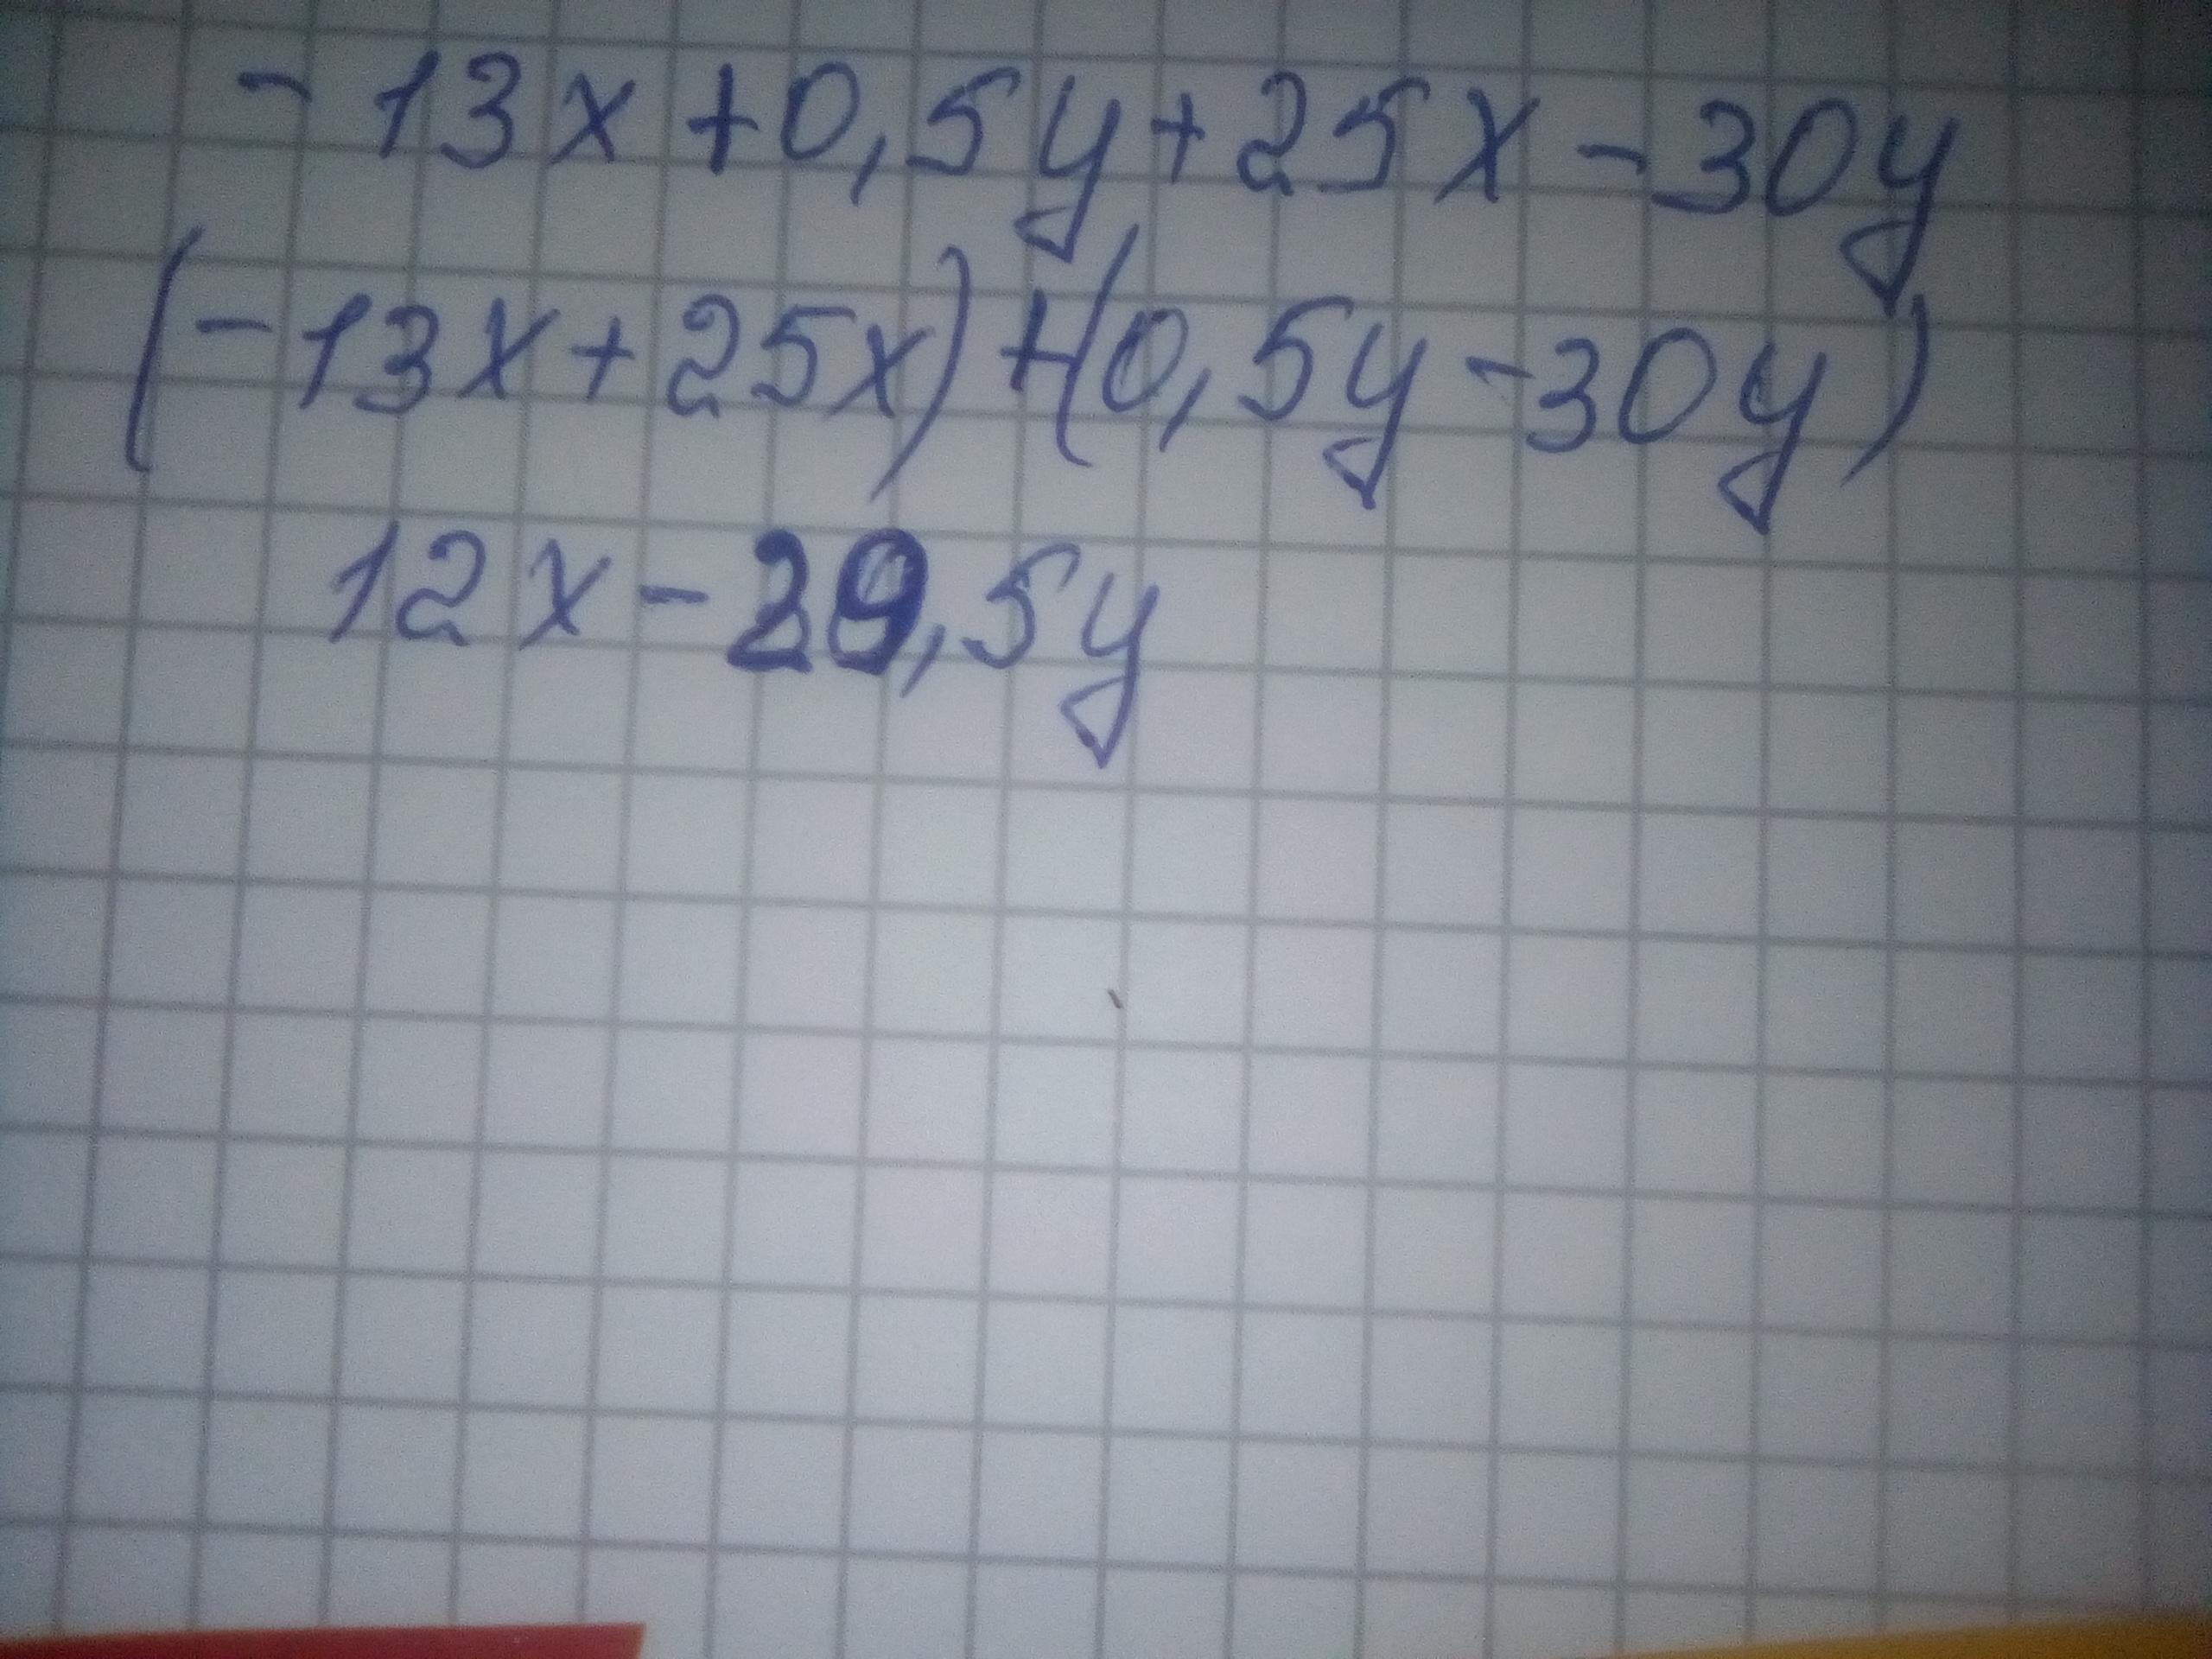 - 13x + 0,5y + 25x - 30y
(- 13x + 25x) + (0,5y - 30y)
12x - 29,5y